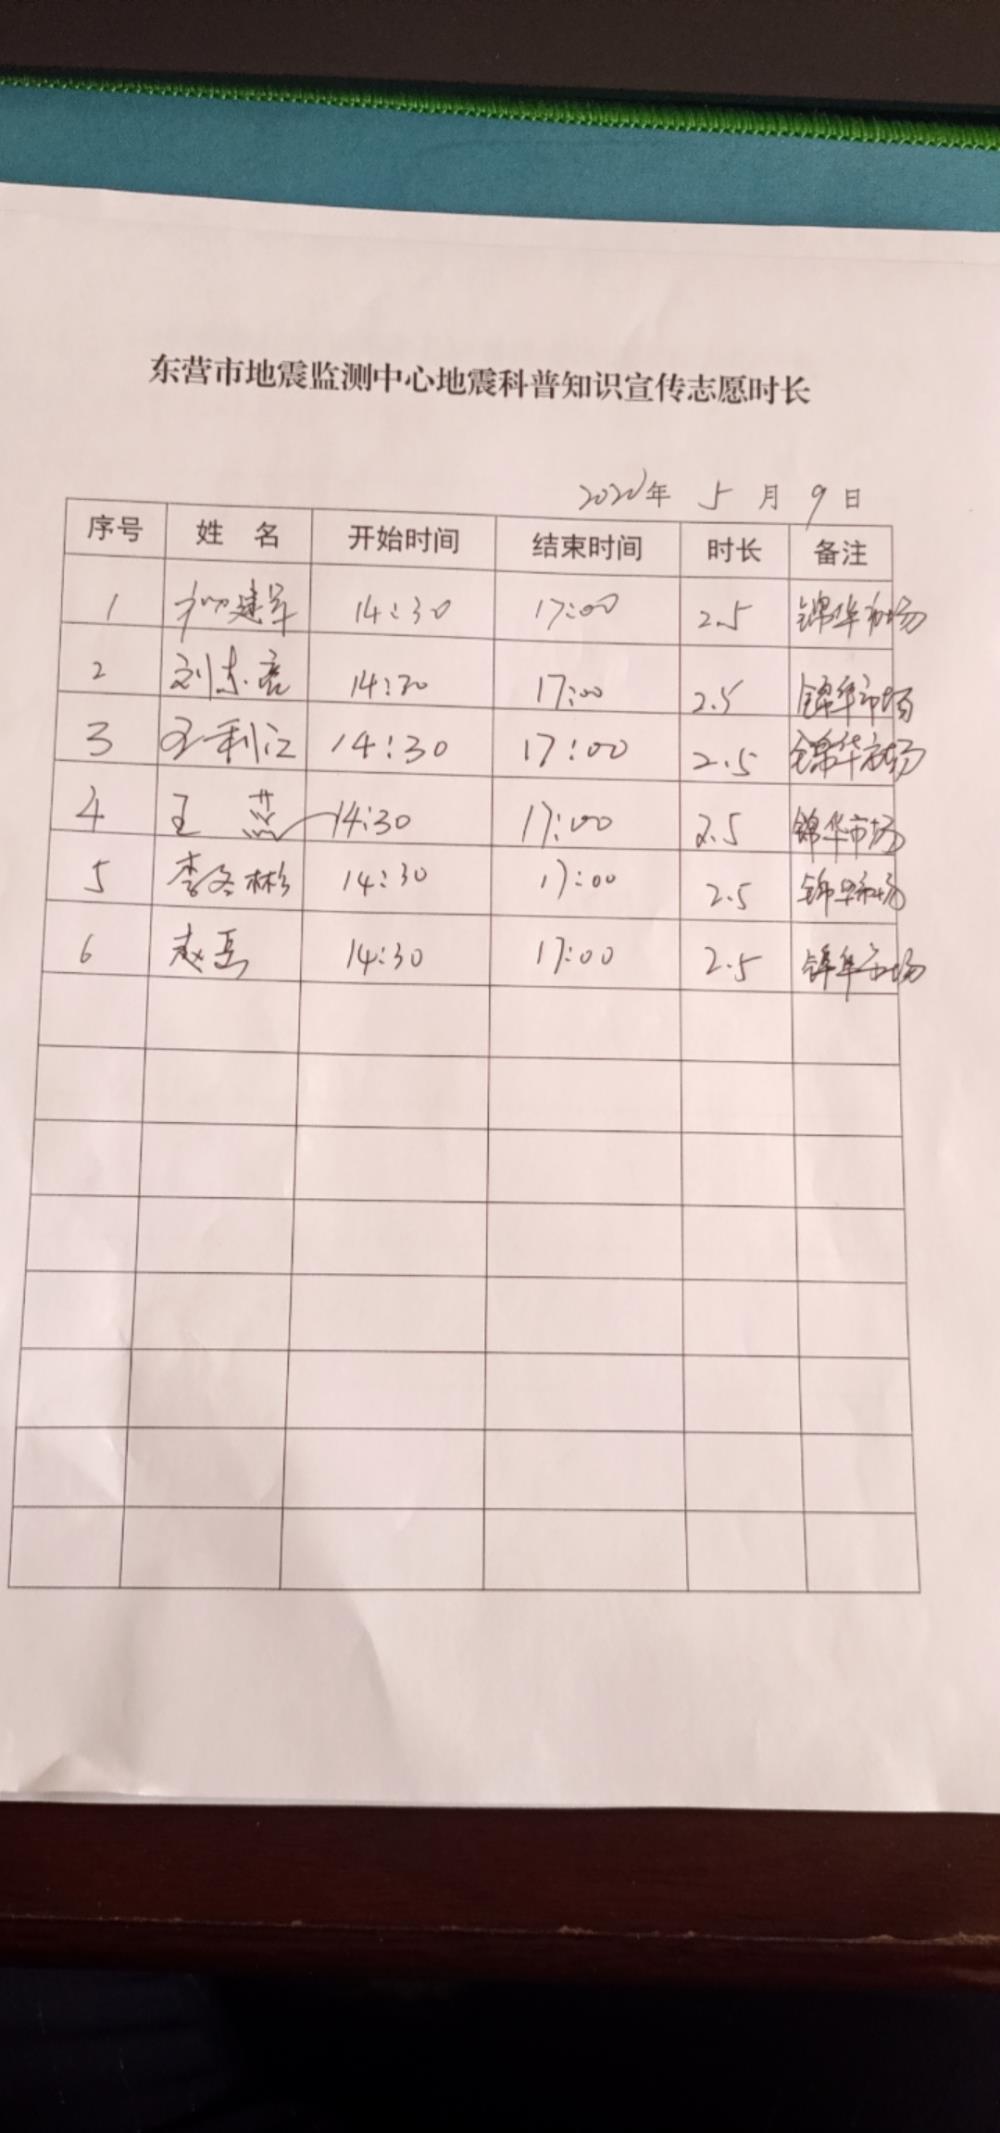 东营市地震监测中心地震科普知识宣传志愿时长
2020年 5 月 9 日
序号 姓 名 开始时间 结束时间 时长 备注
1 建军 14:30 17:00 2.5 锦华市场
2 刘东亮 14:30 17:00 2.5 锦华市场
3 王利江 14:30 17:00 2.5 锦华市场
4 王 蕊 14:30 17:00 2.5 锦华市场
5 李冬彬 14:30 17:00 2.5 锦华市场
6 赵磊 14:30 17:00 2.5 锦华市场